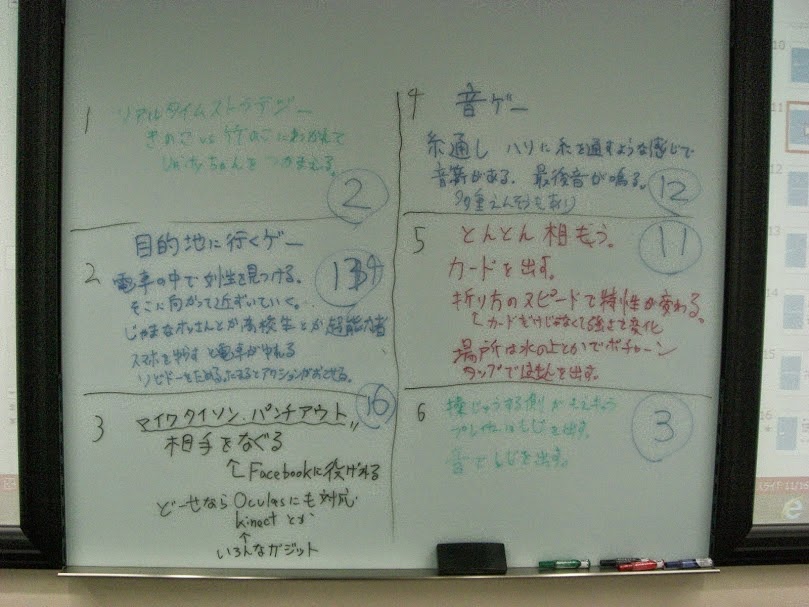 1 リアルタイムストラテジー
きのこ vs 竹のこにわかれて
Unityちゃんをつかまえる。
2
2 目的地に行くゲー
電車の中で女性を見つける。
そこに向かって近ずいていく。
じゃまなオッさんとか高校生とか超能力者
スマホをゆらすと電車がゆれる
リビドーをためる。たまるとアクションがおこせる。
13
3 マイクタイソン.パンチアウト!!
16
相手をなぐる
↑Facebookに投げれる
どーせならOculusにも対応
kinectとか
↑
いろんなガジット
4 音ゲー
糸通し ハリに糸を通すような感じで
音符がある. 最後音が鳴る。
多重えんそうもあり
12
5 とんとん相もう。
11
カードを出す。
折り方のスピードで特性が変わる。
↑カードだけじゃなくて強さで変化
場所は水の上とかでボチャーン
タップで
を出す。
6
プレイヤーはしじを出す。
音でしじを出す。
3
10
11
12
13
14
15
16
スライド 11/16